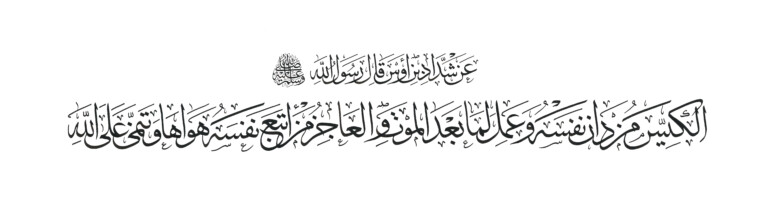 عن شداد بن أوس قال رسول الله ﷺ
الكيس من دان نفسه وعمل لما بعد الموت والعاجز من اتبع نفسه هواها وتمنى على الله